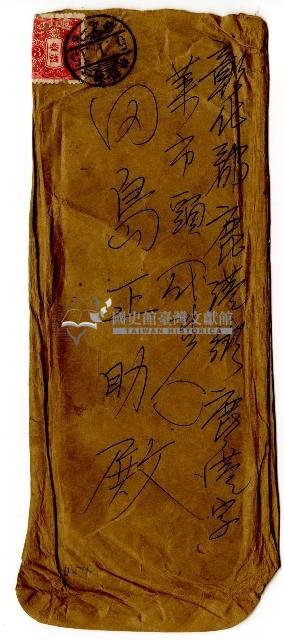 彰化郡鹿港街鹿港字
菜市頭
田島正助殿
國史館臺灣文獻館
TAIWAN HISTORICA